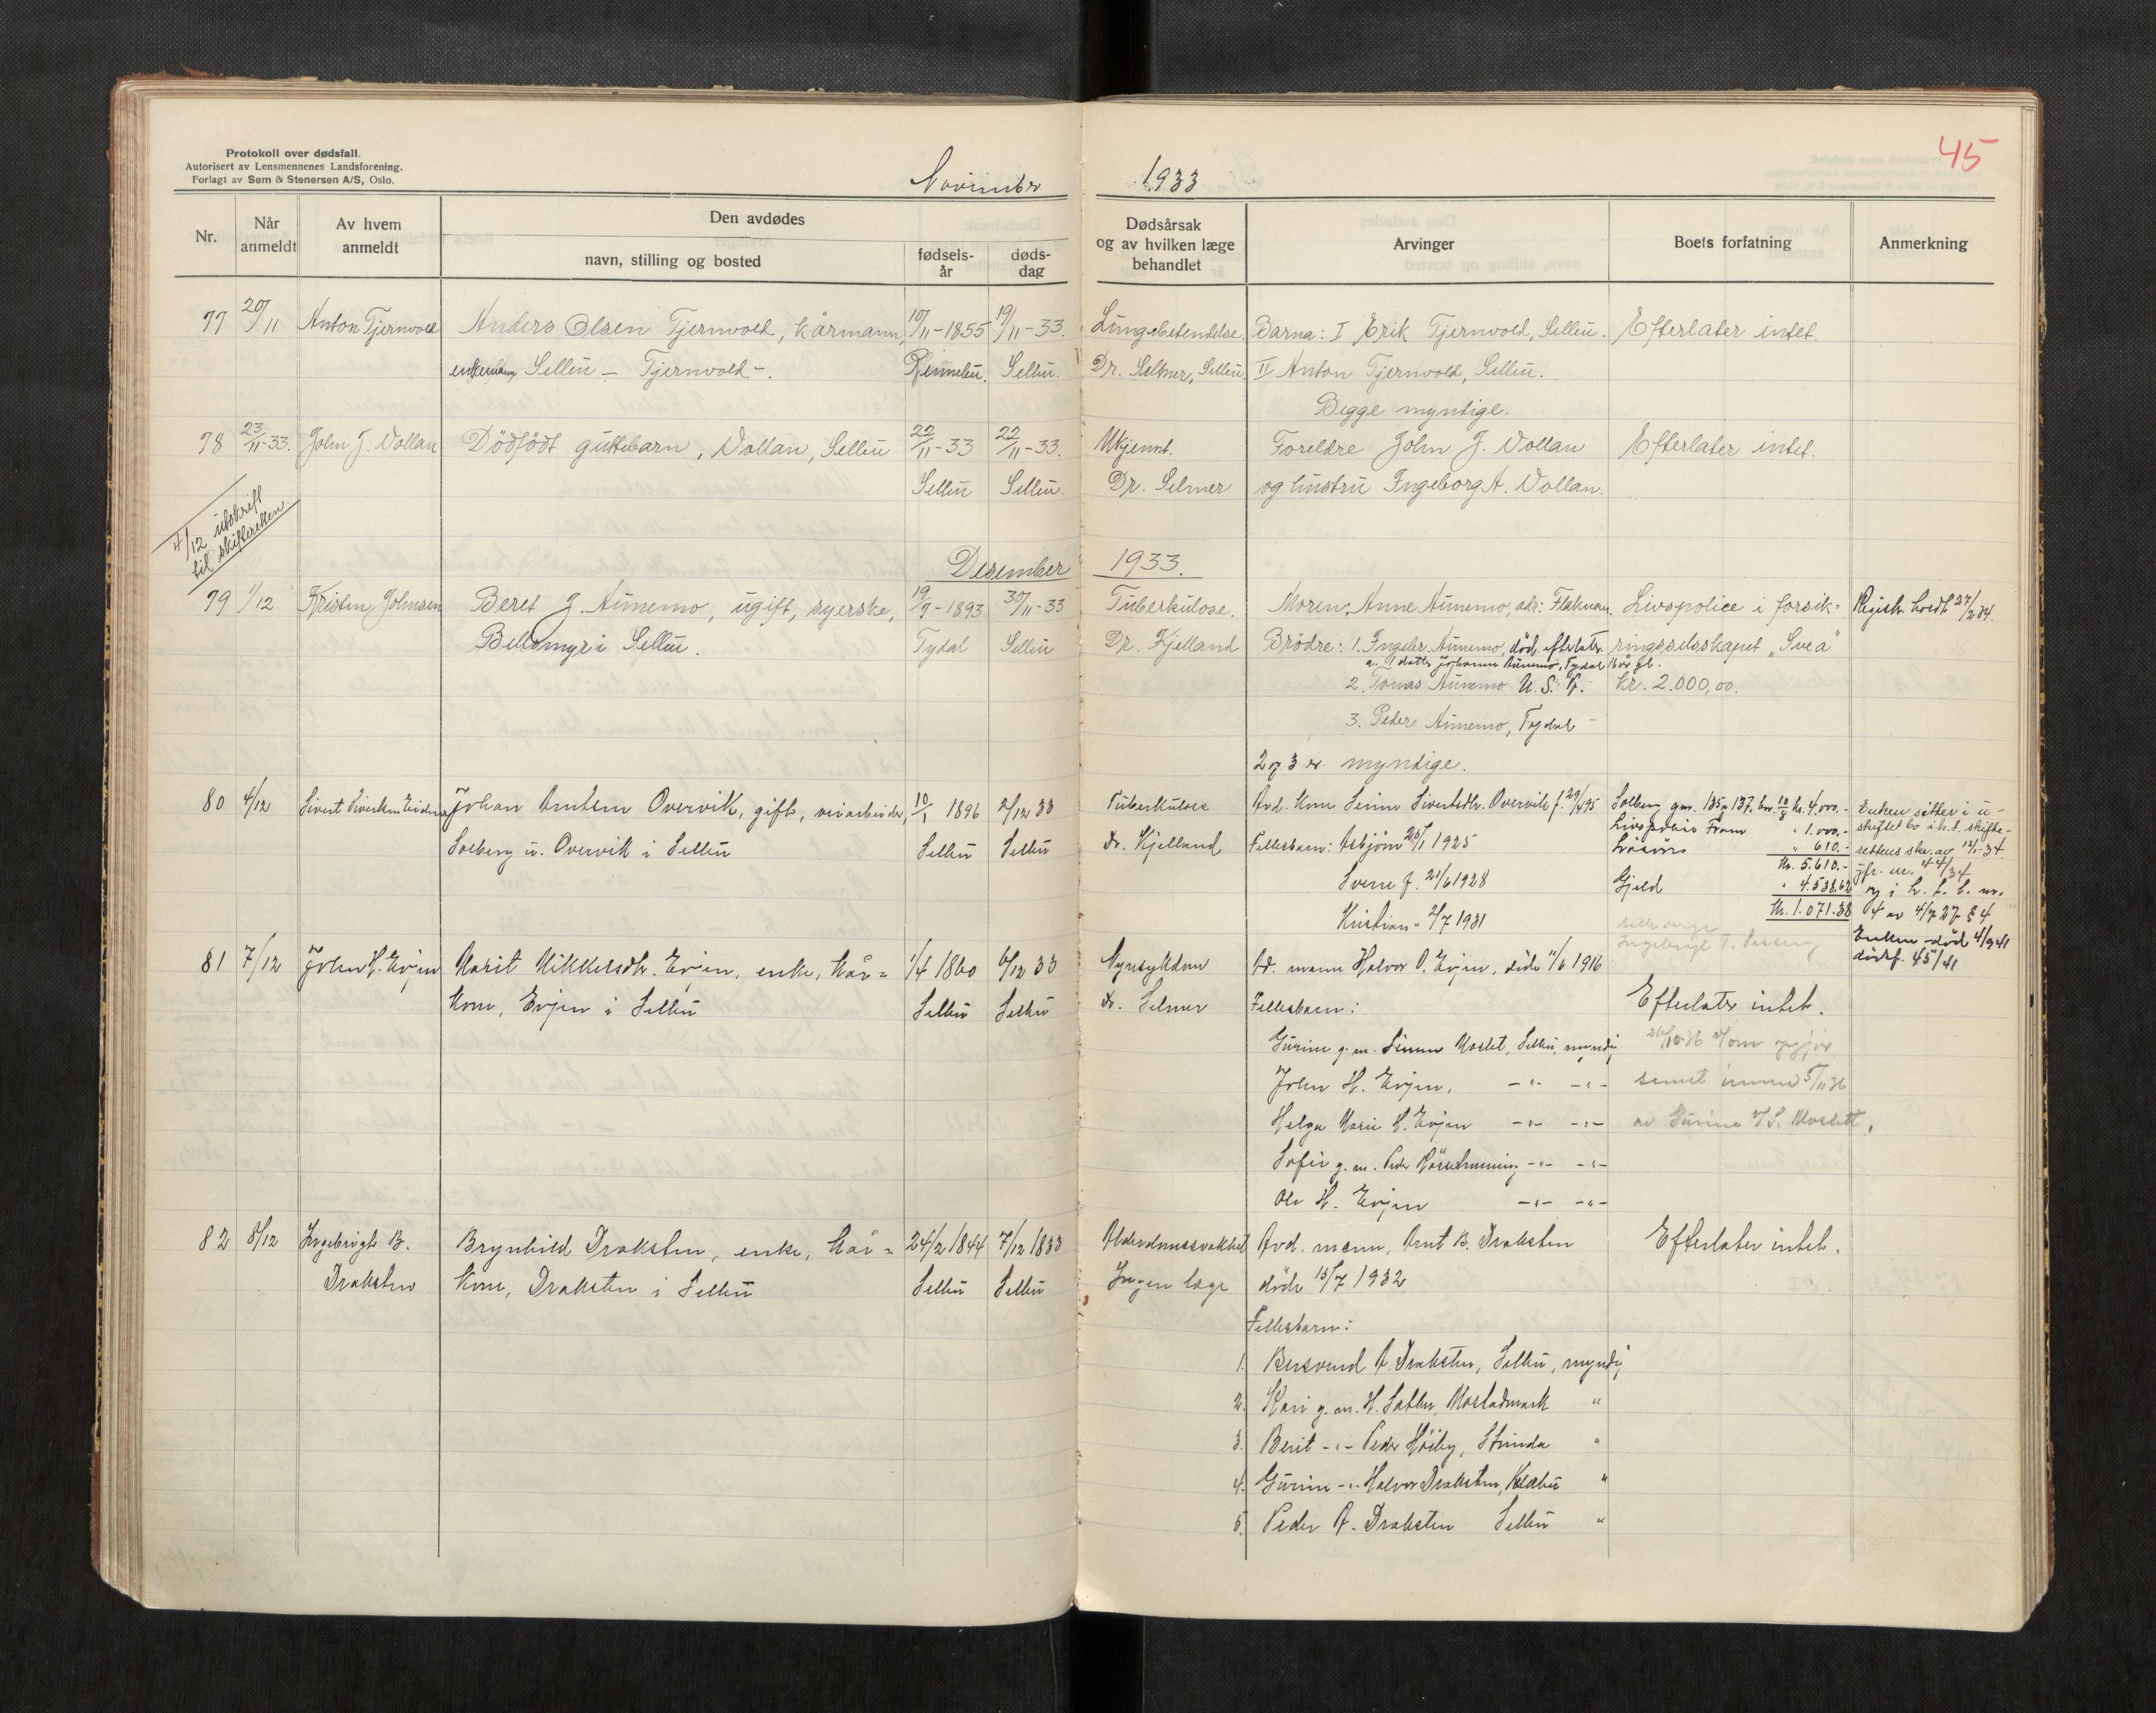 Protokoll over dødsfall.
Autorisert av Lensmennenes Landsforening.
Forlagt av Sem & Stenersen A/S, Oslo.
November 1933
45
Nr.
Når anmeldt
Av hvem anmeldt
Den avdødes
navn, stilling og bosted
fødsels-år
døds-dag
Dødsårsak og av hvilken læge behandlet
Arvinger
Boets forfatning
Anmerkning
77 20/11 Anton Tjernvold Anders Olsen Tjernvold, kårmann, 10/11-1855 19/11-33. Lungebetendelse. Barna: I Erik Tjernvold, Selbu. Efterlater intet.
enkemann, Selbu - Tjernvold -. Rennebu. Selbu. Dr. Selmer, Selbu. II Anton Tjernvold, Selbu.
Begge myndige.
78 23/11-33. John J. Vollan Dödfödt guttebarn, Vollan, Selbu 22/11-33 22/11-33. Ukjennt. Foreldre John J. Vollan Efterlater intet.
Selbu Selbu. Dr. Selmer og hustru Ingeborg A. Vollan.
4/12 utskrift
til skifteretten.
Desember 1933.
79 1/12 Kristen Johnsen Beret J. Aunemo, ugift, syerske, 19/9-1893 30/11-33 Tuberkulose. Moren, Anne Aunemo, adr: Flaknan. Livspolice i forsik= Registr. holdt 27/2 34.
Bellomyr i Selbu. Tydal Selbu Dr. Kjelland Brödre: 1. Ingebr. Aunemo, död, efterlater ringsselskapet "Svea"
a. 1 datter Johanna Aunemo, Tydal 16 år gl.
2. Jonas Aunemo U. S. A. kr. 2.000,00.
3. Peder Aunemo, Tydal
2 og 3 er myndige.
80 4/12 Sivert Sivertsen Johan Arntsen Overvik, gift, veiarbeider, 10/1 1896 2/12 33 Tuberkulose Avd. kone Serine Sivertsdtr. Overvik f. 29/4 95 Solberg gnr. 135 og 137, bnr. 10/8 kr. 4.000.- Enken sitter i u-
Solberg u. Overvik i Selbu Selbu Selbu Dr. Kjelland Fellesbarn: Asbjörn 26/1 1925 Livspolice Fram " 1.000.- skiftet bo i h.t. skifte-
Lösöre " 610.- rettens skr. av 12/1-34
Kr. 5.610.- jfr. nr.
Sverre f. 21/6 1928 Gjeld " 4.538.62 og i h. t. l. nr.
Kristian " 2/7 1931 Kr. 1.071.38 4 av 4/7 27 § 4
Enken död 4/9 41
dödsf. 45/41
81 7/12 John H. Evjen Marit Mikkelsdtr. Evjen, enke, kår= 1/4 1860 6/12 33 Nyresykdom Avd. mann Halvor O. Evjen, död 11/6 1916
kone, Evjen i Selbu Selbu Selbu Dr. Selmer Fellesbarn: Efterlater intet.
Gurine g. m. Simen Moslet, Selbu, myndig 26/10 36 om opgjör
John H. Evjen, -"- -"- senest innen 5/11 36
Helga Marie H. Evjen -"- -"- av Gurine S. Moslett,
Sofie g. m. Peder -"- -"-
Ole H. Evjen -"- -"-
82 8/12 Ingebrigt B. Brynhild Draksten, enke, kår= 24/2 1844 7/12 1833 Alderdomssvakhet Avd. mann, Arnt B. Draksten Efterlater intet.
Draksten kone, Draksten i Selbu Selbu Selbu Ingen læge döde 15/7 1932
Fellesbarn:
1. Bersvend A. Draksten, Selbu, myndig
2. Kari g. m. H. Sæther, Mostadmark "
3. Berit -"- Peder Höiby, Strinda "
4. Gurine -"- Halvor Draksten, Klæbu "
5. Peder A. Draksten Selbu "